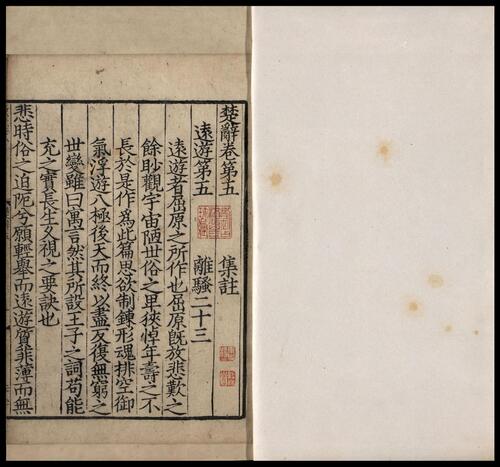 楚辭卷第五 集註
遠遊第五 離騷二十三
遠遊者屈原之所作也屈原既放悲歎之
餘眇觀宇宙陋世俗之卑狹悼年壽之不
長於是作為此篇思欲制鍊形魂排空御
氣浮遊八極後天而終以盡反復無窮之
世變雖曰寓言然其所設王子之詞苟能
充之實長生久視之要訣也
悲時俗之迫阨兮願輕舉而遠遊質菲薄而無